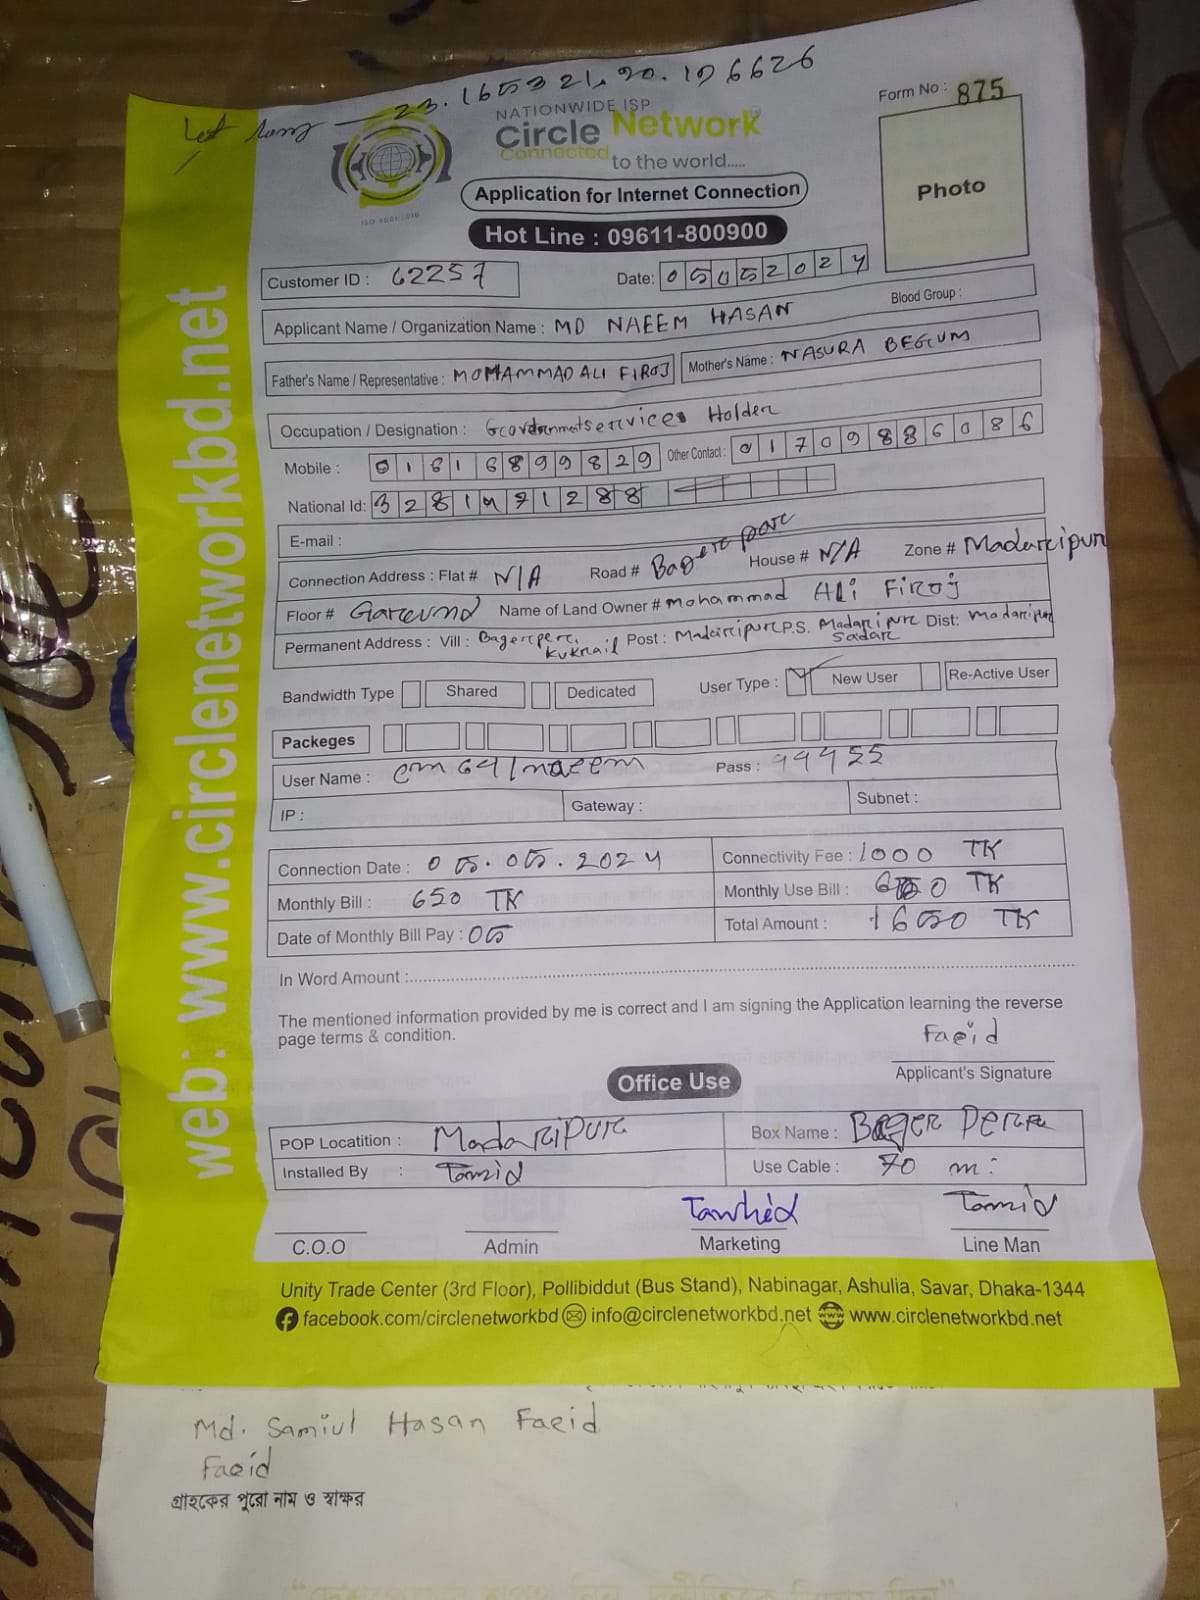 23.165321, 90.196626
NATIONWIDE ISP
Circle Network
Connected to the world.....
ISO 9001:2015
Form No : 875
Photo
Application for Internet Connection
Hot Line : 09611-800900
Customer ID : 62257
Date: 05052024
Applicant Name / Organization Name : MD NAEEM HASAN Blood Group :
Father's Name / Representative : MOHAMMAD ALI FIROJ Mother's Name : NASURA BEGUM
Occupation / Designation : Holder
Mobile : 01616899829 Other Contact : 01709886086
National Id:
E-mail :
Connection Address : Flat # N/A Road # House # N/A Zone # Madaripur
Floor # Name of Land Owner # mohammad ALi Firoj
Permanent Address : Vill : Post : Madaripur P.S. Madaripur Sadar Dist: madaripur
Bandwidth Type Shared Dedicated User Type : New User Re-Active User
Packeges
User Name : Pass :
IP : Gateway : Subnet :
Connection Date : 05.05.2024 Connectivity Fee : 1000 TK
Monthly Bill : 650 TK Monthly Use Bill : 650 TK
Date of Monthly Bill Pay : 05 Total Amount : 1650 TK
In Word Amount :
The mentioned information provided by me is correct and I am signing the Application learning the reverse
page terms & condition.
Faeid
Applicant's Signature
Office Use
POP Locatition : Madaripur Box Name :
Installed By : Tamid Use Cable : 70 m:
Tawhid Tamid
C.O.O Admin Marketing Line Man
Unity Trade Center (3rd Floor), Pollibiddut (Bus Stand), Nabinagar, Ashulia, Savar, Dhaka-1344
facebook.com/circlenetworkbd info@circlenetworkbd.net www.circlenetworkbd.net
web: www.circlenetworkbd.net
Md. Samiul Hasan Faeid
Faeid
গ্রাহকের পুরো নাম ও স্বাক্ষর